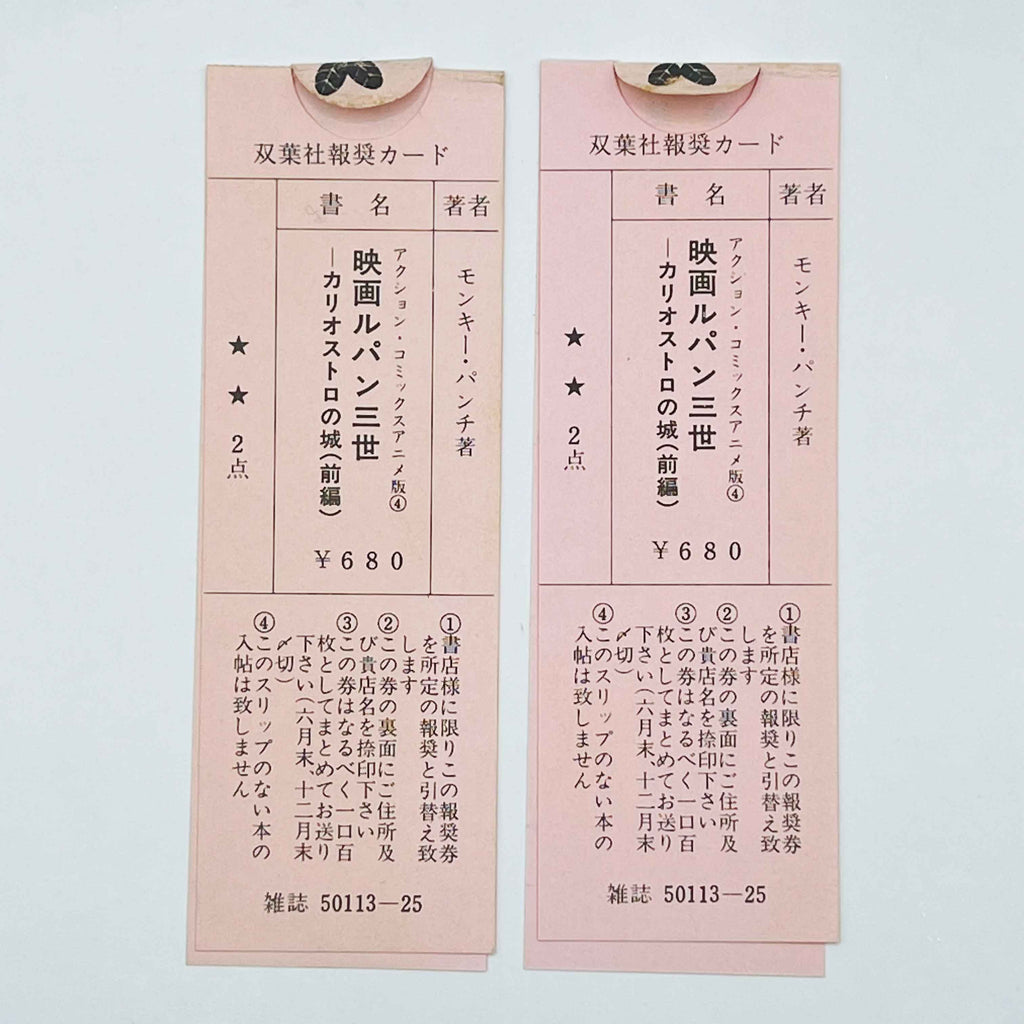 双葉社報奨カード
著者
書名
モンキー・パンチ著
アクション・コミックスアニメ版④
映画ルパン三世
―カリオストロの城(前編)
¥680
★★2点
①書店様に限りこの報奨券
を所定の報奨と引替え致
します
②この券の裏面にご住所及
び貴店名を捺印下さい
③この券はなるべく一口百
枚としてまとめてお送り
下さい(六月末、十二月末
〆切)
④このスリップのない本の
入帖は致しません
雑誌 50113―25
双葉社報奨カード
著者
書名
モンキー・パンチ著
アクション・コミックスアニメ版④
映画ルパン三世
―カリオストロの城(前編)
¥680
★★2点
①書店様に限りこの報奨券
を所定の報奨と引替え致
します
②この券の裏面にご住所及
び貴店名を捺印下さい
③この券はなるべく一口百
枚としてまとめてお送り
下さい(六月末、十二月末
〆切)
④このスリップのない本の
入帖は致しません
雑誌 50113―25